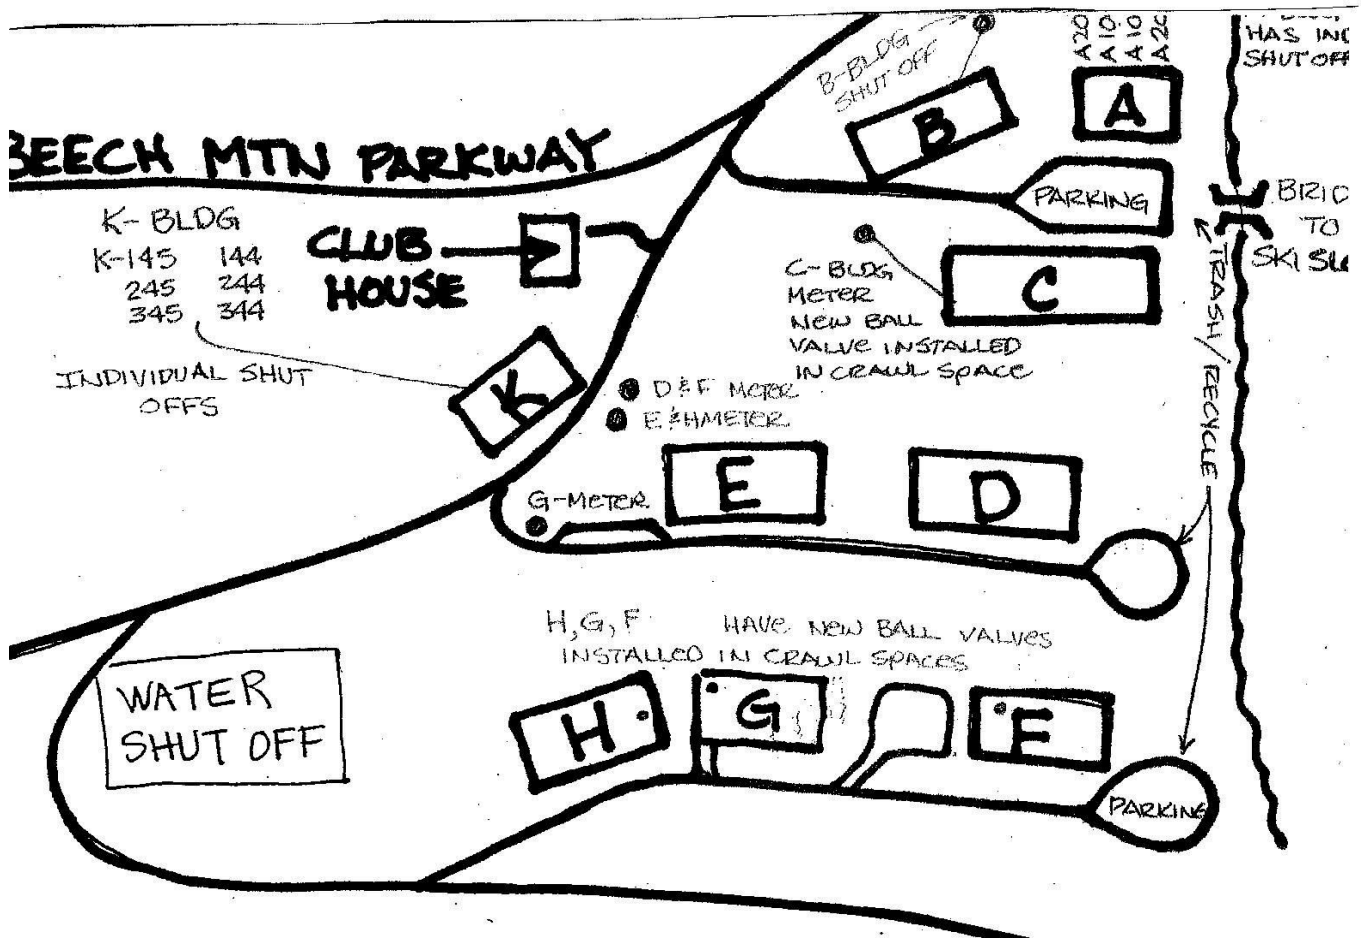 B-BLDG
SHUT OFF
A20
A10
A10
A20
HAS IND
SHUT OFF
B
A
BEECH MTN PARKWAY
PARKING
BRID
TO
SKI SLO
K-BLDG
K-145 144
245 244
345 344
INDIVIDUAL SHUT
OFFS
CLUB
HOUSE
C-BLDG
METER
NEW BALL
VALVE INSTALLED
IN CRAWL SPACE
C
TRASH/RECYCLE
K
D&F METER
E&H METER
G-METER
E
D
H, G, F HAVE NEW BALL VALVES
INSTALLED IN CRAWL SPACES
WATER
SHUT OFF
H
G
F
PARKING